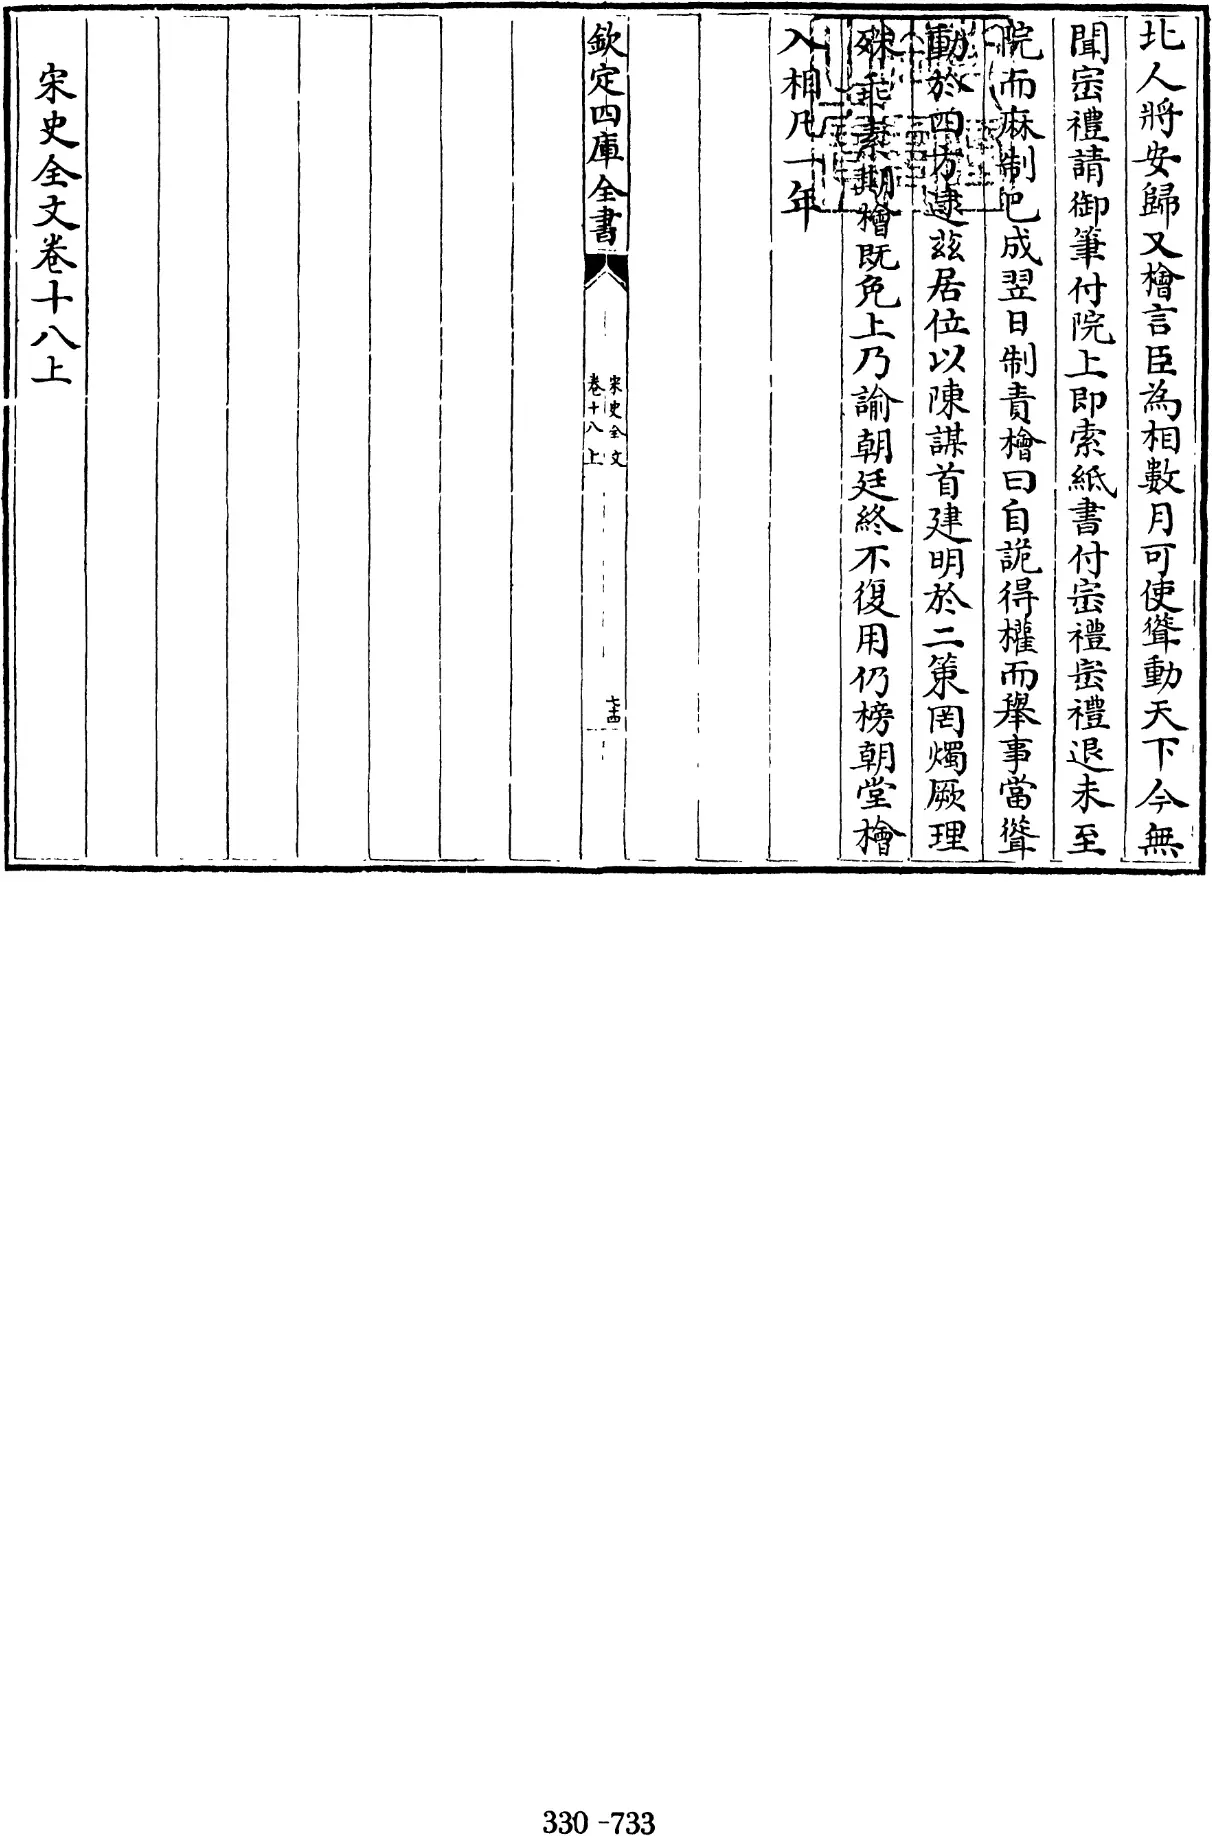 北人將安歸又檜言臣為相數月可使聳動天下今無
聞崈禮請御筆付院上即索紙書付崈禮崈禮退未至
院而麻制已成翌日制責檜曰自詭得權而舉事當聳
動於四方逮兹居位以陳謀首建明於二策罔燭厥理
殊乖素期檜既免上乃諭朝廷終不復用仍榜朝堂檜
入相凡一年
欽定四庫全書
宋史全文
卷十八上
七十四
宋史全文卷十八上
330-733